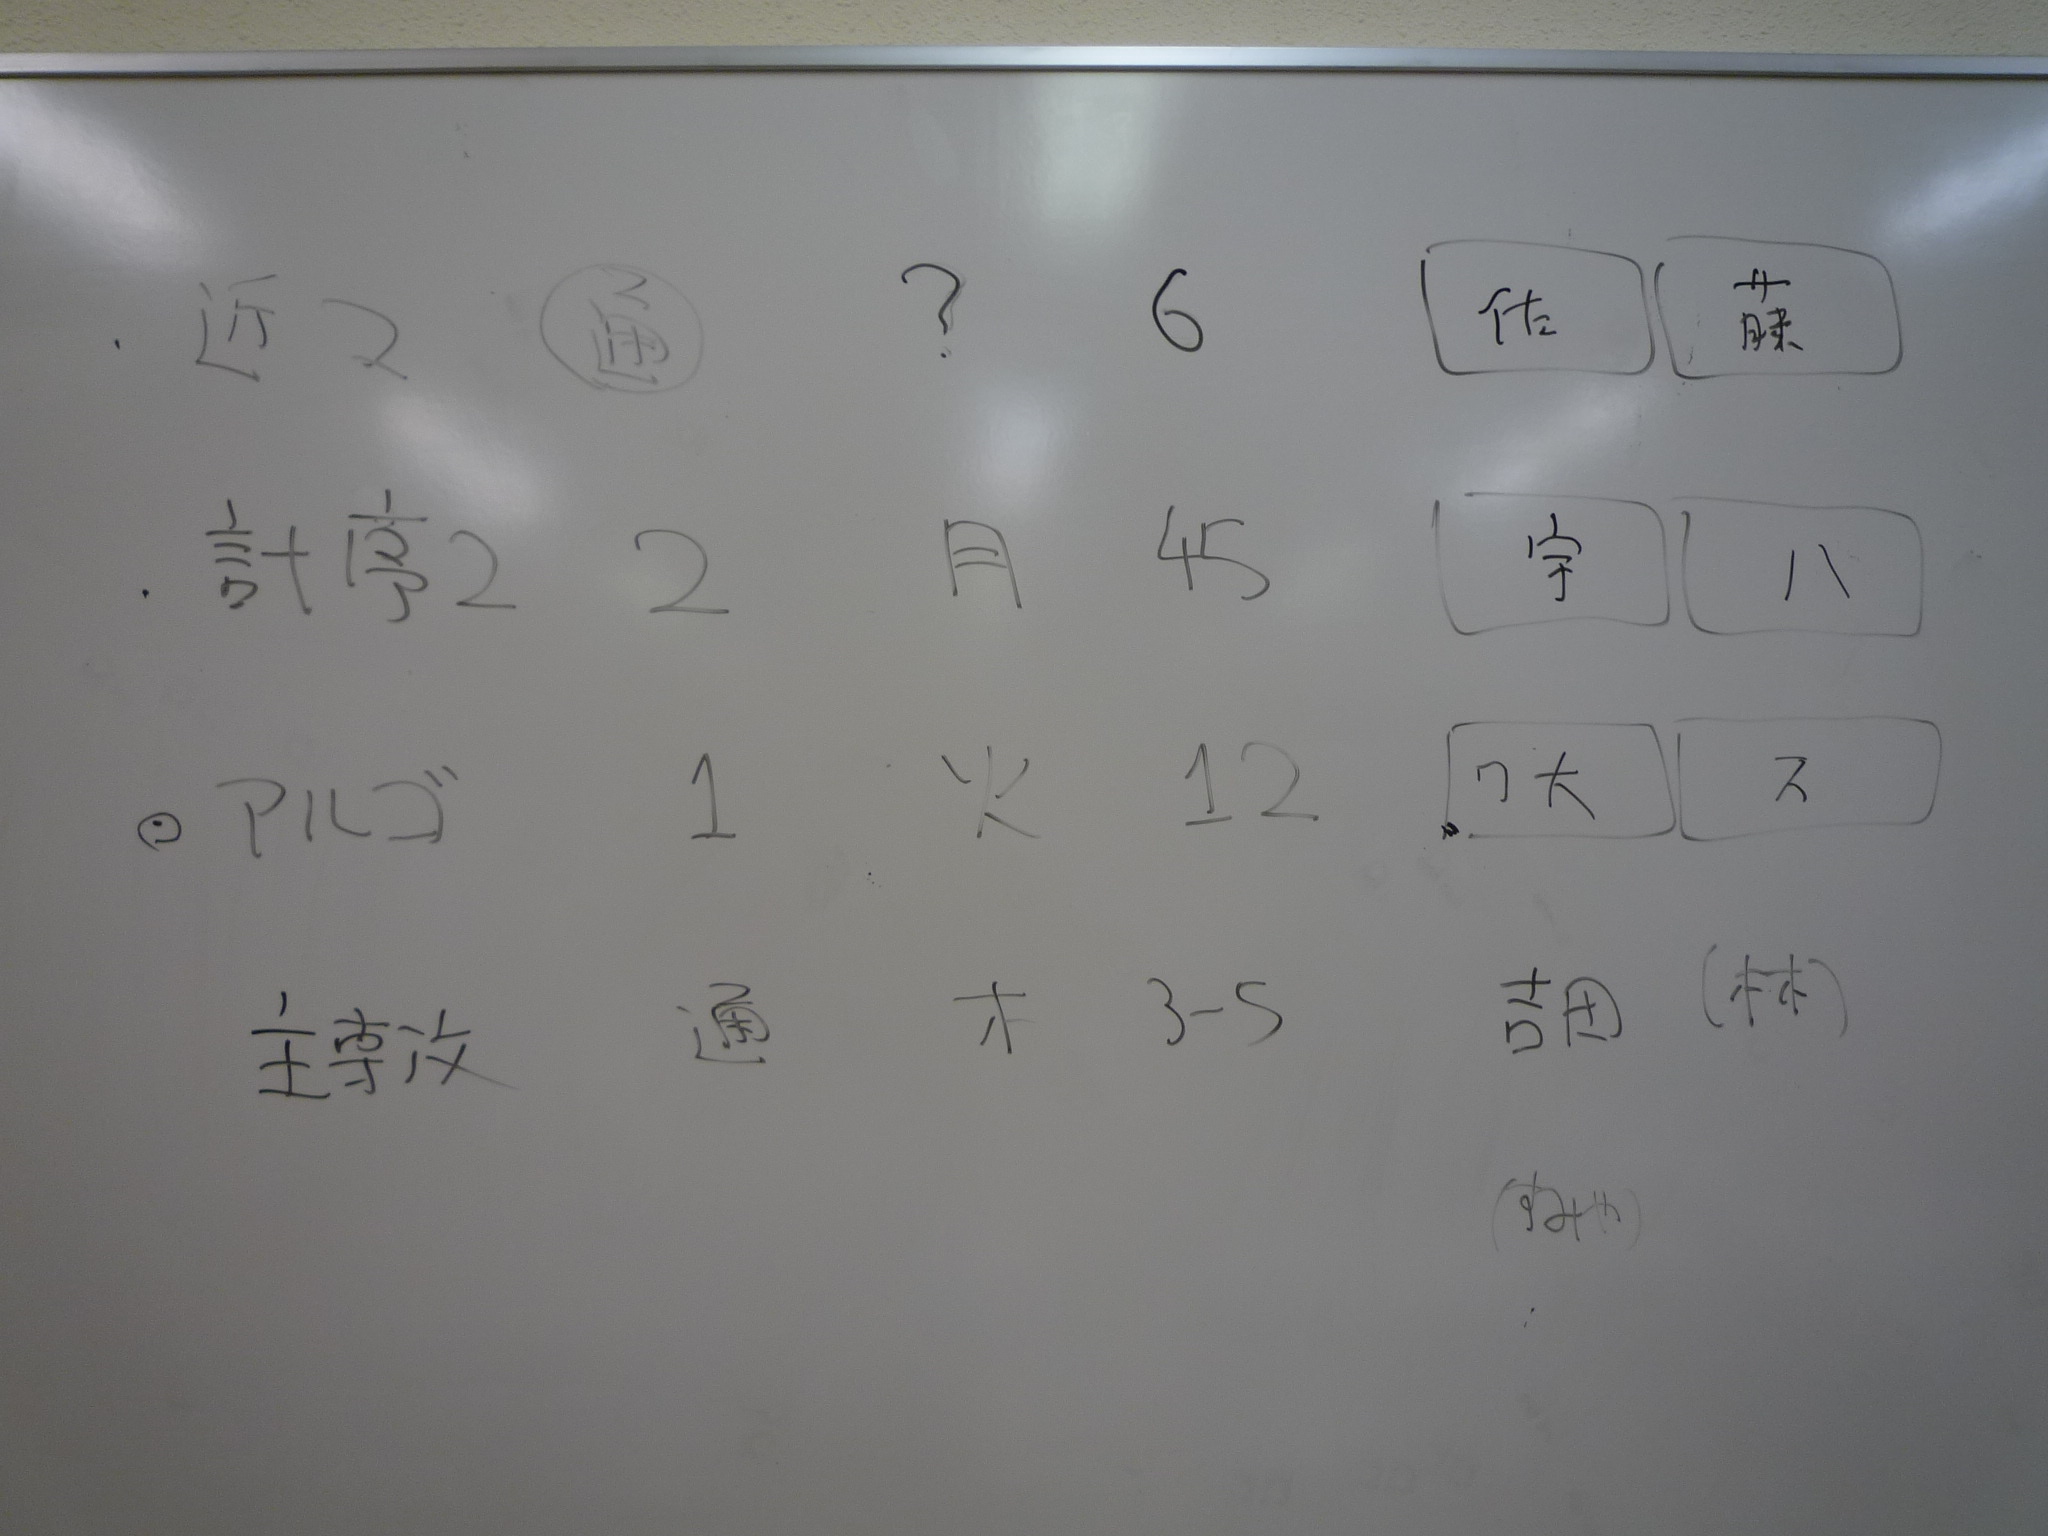 ・近2 通 ? 6 佐 藤
・計 2 2 月 45 宇 八
アルゴ 1 火 12 ワ大 ス
主専攻 通 木 3-5 (林)